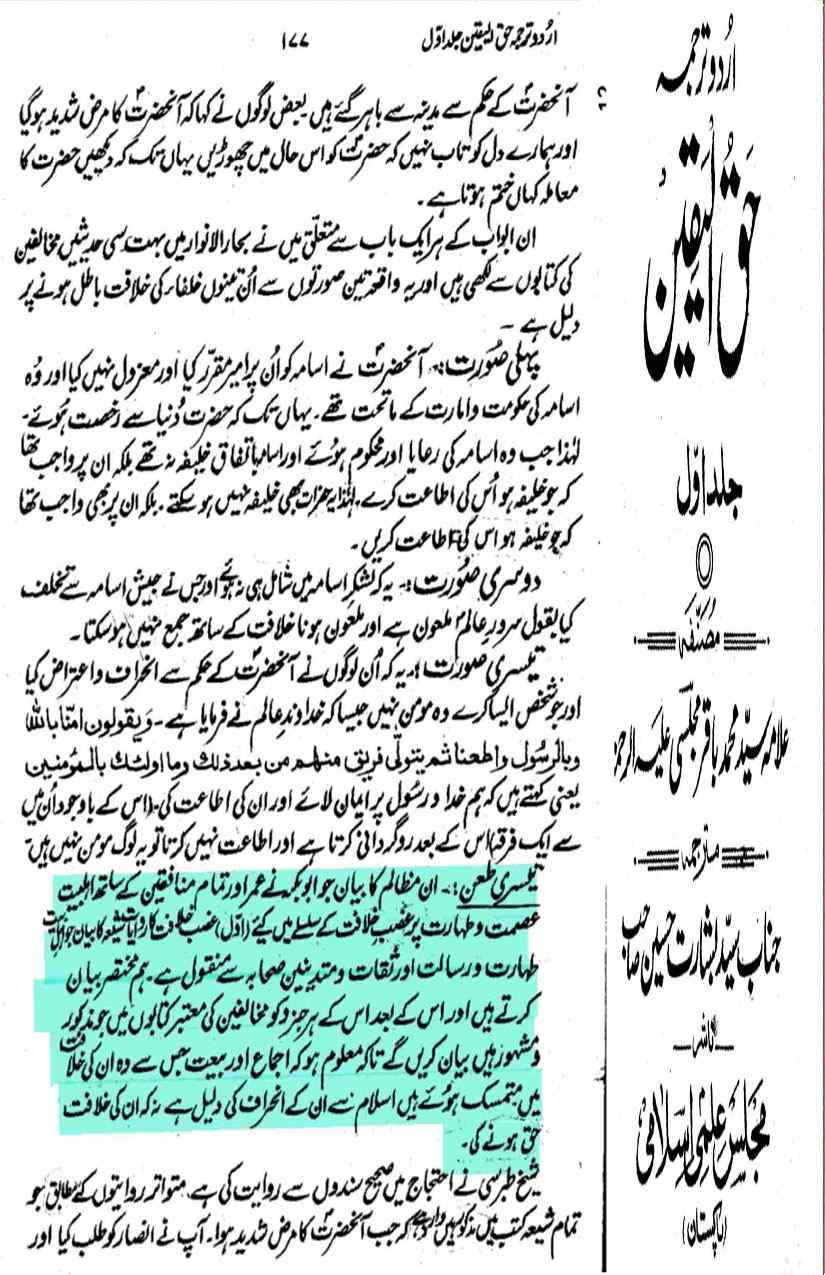 اردو ترجمہ حق الیقین جلد اول
۱۷۷
آنحضرتؐ کے حکم سے مدینہ سے باہر گئے ہیں۔ بعض لوگوں نے کہا کہ آنحضرتؐ کا مرض شدید ہوگیا
اور ہمارے دل کو تاب نہیں کہ حضرتؐ کو اس حال میں چھوڑیں یہاں تک کہ دیکھیں حضرت کا
معاملہ کہاں ختم ہوتا ہے۔
ان ابواب کے ہر ایک باب سے متعلق میں نے بحار الانوار میں بہت سی حدیثیں مخالفین
کی کتابوں سے لکھی ہیں اور یہ واقعہ تین صورتوں سے اُن تینوں خلفاء کی خلافت باطل ہونے پر
دلیل ہے ۔
پہلی صُورت:۔ آنحضرتؐ نے اسامہ کو اُن پر امیر مقرر کیا اور معزول نہیں کیا اور وُہ
اسامہ کی حکومت و امارت کے ماتحت تھے۔ یہاں تک کہ حضرت دُنیا سے رخصت ہُوئے۔
لہٰذا جب وہ اسامہ کی رعایا اور محکوم ہوئے اور اسامہ باتفاق خلیفہ نہ تھے بلکہ ان پر واجب تھا
کہ جو خلیفہ ہو اُس کی اطاعت کرے۔ لہٰذا یہ حضرات بھی خلیفہ نہیں ہو سکتے۔ بلکہ ان پر بھی واجب تھا
کہ جو خلیفہ ہو اس کی اطاعت کریں۔
دوسری صُورت:۔ یہ کہ لشکرِ اسامہ میں شامل ہی نہ ہوئے اور جس نے جیش اسامہ سے تخلف
کیا بقول سرورِ عالمؐ ملعون ہے اور ملعون ہونا خلافت کے ساتھ جمع نہیں ہو سکتا۔
تیسری صورت:۔ یہ کہ اُن لوگوں نے آنحضرتؐ کے حکم سے انحراف و اعتراض کیا
اور جو شخص ایسا کرے وہ مومن نہیں جیسا کہ خداوندِ عالم نے فرمایا ہے۔ ویقولون امنّا باللہ
وبالرسول واطعنا ثم یتولّی فریق منھم من بعد ذلك وما اولئك بالمؤمنین
یعنی کہتے ہیں کہ ہم خدا و رسُول پر ایمان لائے اور ان کی اطاعت کی۔ (اس کے باوجود اُن میں
سے ایک فرقہ) اس کے بعد روگردانی کرتا ہے اور اطاعت نہیں کرتا تو یہ لوگ مومن نہیں ہیں۔
تیسری طعن:۔ ان مظالم کا بیان جو ابوبکر نے عمر اور تمام منافقین کے ساتھ اہلبیت
عصمت و طہارت پر غصبِ خلافت کے سلسلے میں کیے (اوّل) غصب خلافت کا روایات شیعہ کا بیان جو اہل بیت
طہارت و رسالت اور ثقات و متدینین صحابہ سے منقول ہے۔ ہم مختصر بیان
کرتے ہیں اور اس کے بعد اس کے ہر جزو کو مخالفین کی معتبر کتابوں میں جو مذکور
و مشہور ہیں بیان کریں گے تاکہ معلوم ہو کہ اجماع اور بیعت جس سے وہ ان کی خلافت
میں متمسک ہوئے ہیں اسلام سے ان کے انحراف کی دلیل ہے نہ کہ ان کی خلافت
حق ہونے کی۔
شیخ طبرسی نے احتجاج میں صحیح سندوں سے روایت کی ہے، متواتر روایتوں کے مطابق جو
تمام شیعہ کتب میں مذکور ہیں وارد ہے کہ جب آنحضرتؐ کا مرض شدید ہوا۔ آپ نے انصار کو طلب کیا اور
اردو ترجمہ
حق الیقین
جلد اوّل
مصنّفہ
علامہ سیّد محمد باقر مجلسی علیہ الرحمۃ
مترجمہ
جناب سیّد بشارت حسین صاحب
ناشر
مجلس علمی اسلامی
(پاکستان)